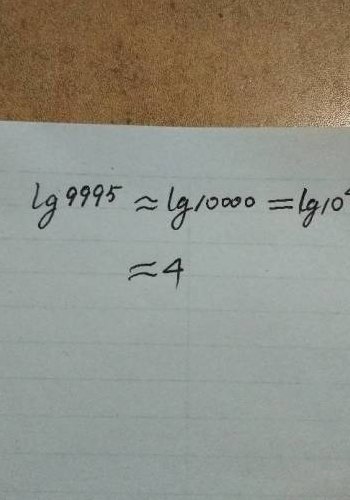 lg 9995 ≈ lg 10000 = lg 10⁴
≈ 4